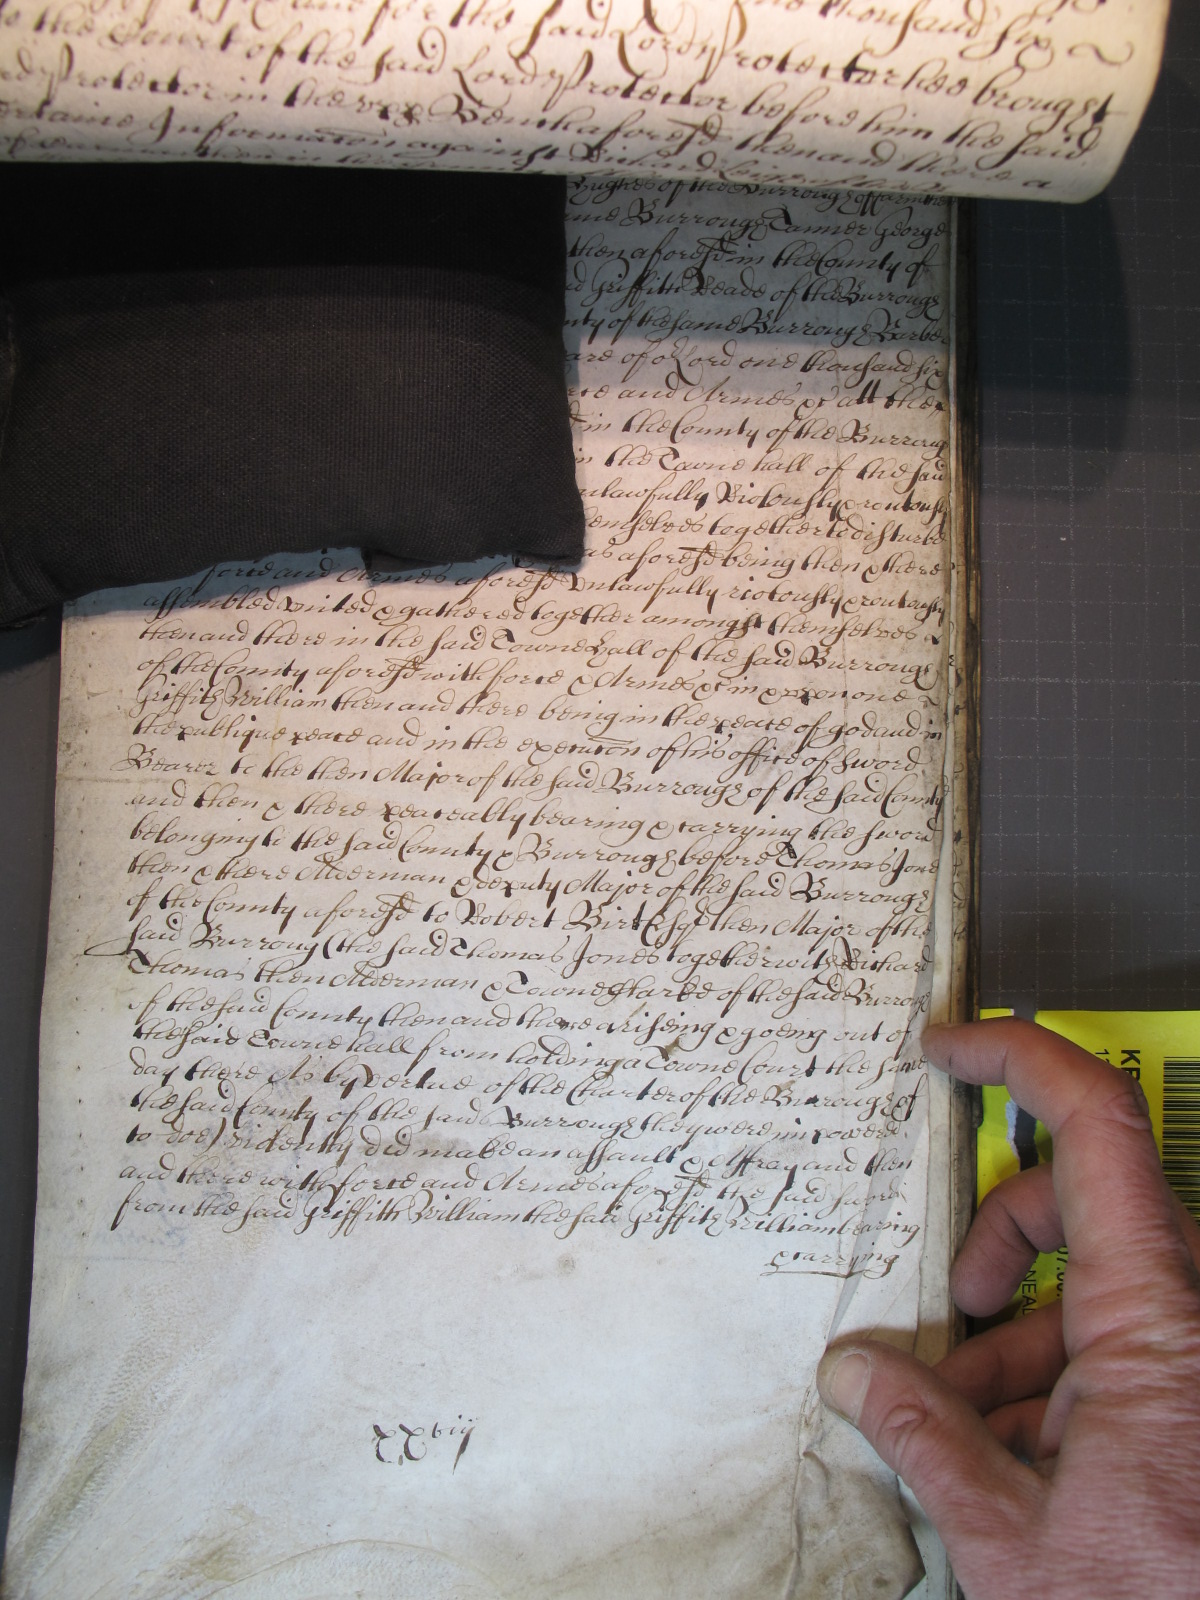 thousand six
to the Court of the said Lord Protector hee brought
Lord Protector in the upp Bench before him the said
aforesd then and there a
certaine Informacon against Richard
Hughes of the Burrough of
same Burrough Tanner George
then aforesd in the County of
Griffith Meade of the Burrough
County of the same Burrough Barber
yeare of or Lord one thousand six
force and Armes &c att the
in the County of the Burrough
in the Towne hall of the said
unlawfully Riotously & routously
themselves together to disturbe
as aforesd being then & there
force and Armes aforesd unlawfully riotously & routously
assembled united & gathered together amongst themselves
then and there in the said Towne Hall of the said Burrough
of the County aforesd with force & Armes &c in & upon one
Griffith William then and there being in the peace of god and in
the publique peace and in the execucon of his office of Sword
Bearer to the then Major of the said Burrough of the said County
and then & there peaceably bearing & carrying the Sword
belonging to the said County & Burrough before Thomas Jones
then & there Alderman & deputy Major of the said Burrough
of the County aforesd to Robert Birt Esqr then Major of the
said Burrough (the said Thomas Jones together with Richard
Thomas then Alderman & Towne Clarke of the said Burrough
of the said County then and there ariseing & goeing out of
the said Towne hall from holding a Towne Court the same
day there As by vertue of the Charter of the Burrough of
the said County of the said Burrough they were impowered
to doe) violently did make an assault & Affray and then
and there with force and Armes aforesd the said sword
from the said Griffith William the said Griffith William bearing
& carrying
xxviij